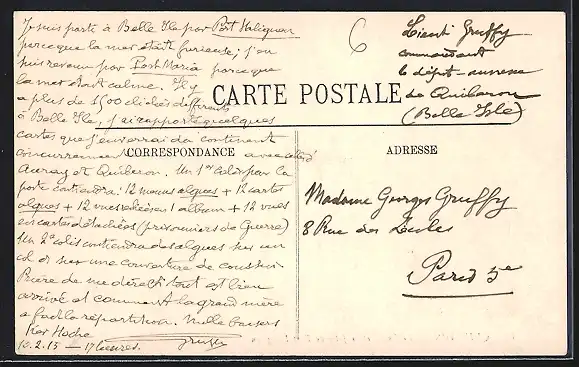 Je suis parti à Belle Ile par Port Haliguen
parce que la mer était furieuse; j'en
suis revenu par Port Maria parce que
la mer était calme. Il y
a plus de 1500 clichés différents
à Belle Ile, j'ai rapporté quelques
cartes que j'enverrai du continent
concurremment avec celles d'
Auray et Quiberon. Un 1er colis par la
poste contiendra: 12 menus algues + 12 cartes
algues + 12 vues 1 album + 12 vues
en cartes détachées (prisonniers de Guerre)
Un 2e colis contiendra des algues sur un
col et sur une couverture de coussin.
Prière de me dire si tout est bien
arrivé et comment la grand mère
a fait la répartition. Mille baisers
Ker Hoche
10.2.15 — 17 heures. Gruffy
CARTE POSTALE
CORRESPONDANCE
ADRESSE
Lieut Gruffy
commandant
le dépôt-annexe
de Quiberon
(Belle Isle)
Madame Georges Gruffy
8 Rue des Écoles
Paris 5e